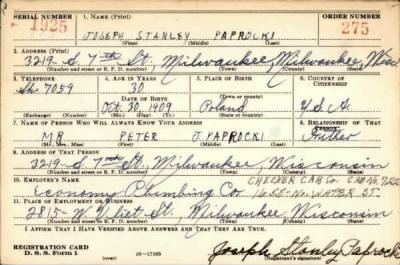 SERIAL NUMBER 1. NAME (Print) ORDER NUMBER
1925 JOSEPH STANLEY PAPROCKI 275
(First) (Middle) (Last)
2. ADDRESS (Print)
3219 S. 7th St. Milwaukee, Milwaukee, Wisc
(Number and street or R. F. D. number) (Town) (County) (State)
3. TELEPHONE 4. AGE IN YEARS 5. PLACE OF BIRTH 6. COUNTRY OF CITIZENSHIP
Sh. 7059 30
DATE OF BIRTH (Town or county)
Oct. 30, 1909 Poland U.S.A.
(Exchange) (Number) (Mo.) (Day) (Yr.) (State or country)
7. NAME OF PERSON WHO WILL ALWAYS KNOW YOUR ADDRESS 8. RELATIONSHIP OF THAT PERSON
MR PETER J. PAPROCKI Father
(Mr., Mrs., Miss) (First) (Middle) (Last)
9. ADDRESS OF THAT PERSON
3219 S. 7th St. Milwaukee, Wisconsin
(Number and street or R. F. D. number) (Town) (County) (State)
10. EMPLOYER'S NAME CHECKER CAB CO.
Economy Plumbing Co. WATER ST.
11. PLACE OF EMPLOYMENT OR BUSINESS
2815 W. St. Milwaukee Wisconsin
(Number and street or R. F. D. number) (Town) (County) (State)
I AFFIRM THAT I HAVE VERIFIED ABOVE ANSWERS AND THAT THEY ARE TRUE.
REGISTRATION CARD
D. S. S. Form 1 (over) 16—17105 Joseph Stanley Paprocki